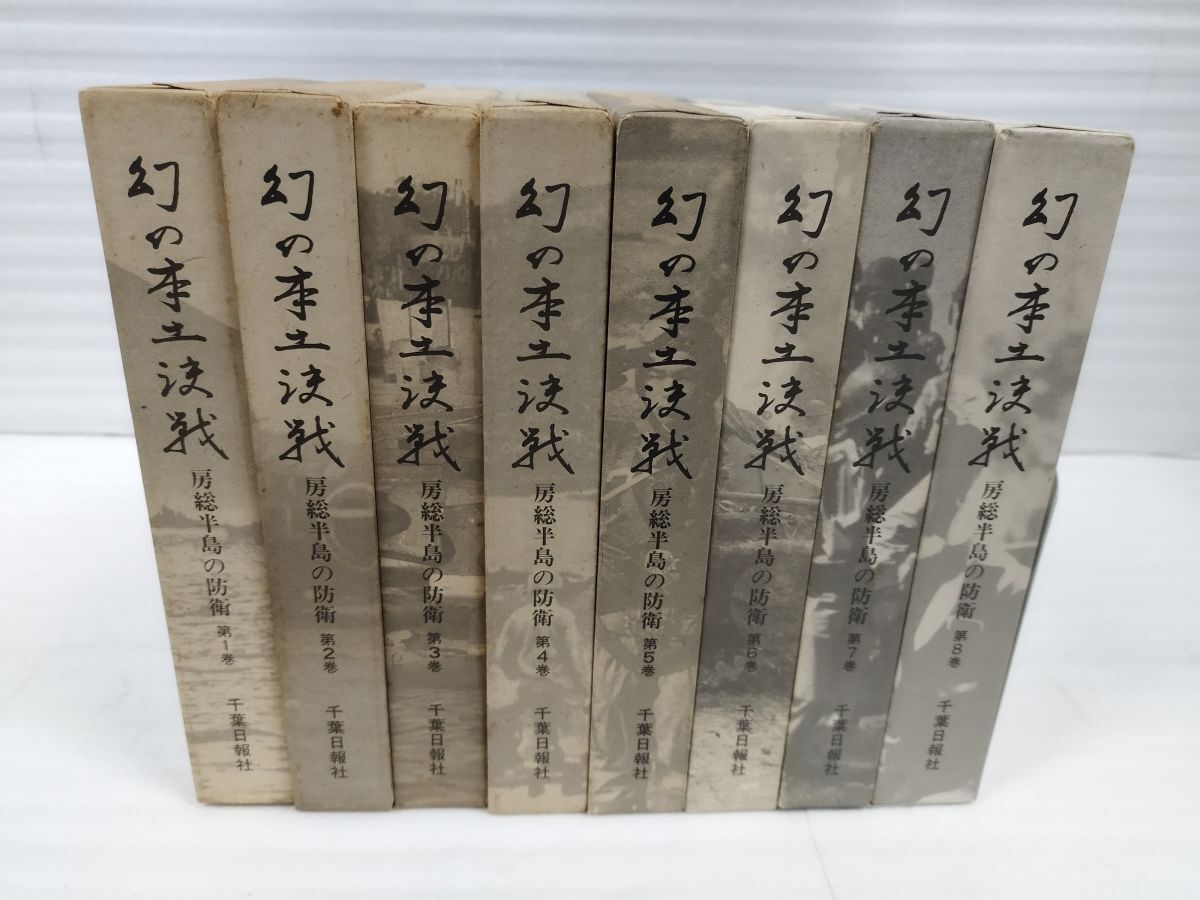 幻の本土決戦 房総半島の防衛 第1巻 千葉日報社
幻の本土決戦 房総半島の防衛 第2巻 千葉日報社
幻の本土決戦 房総半島の防衛 第3巻 千葉日報社
幻の本土決戦 房総半島の防衛 第4巻 千葉日報社
幻の本土決戦 房総半島の防衛 第5巻 千葉日報社
幻の本土決戦 房総半島の防衛 第6巻 千葉日報社
幻の本土決戦 房総半島の防衛 第7巻 千葉日報社
幻の本土決戦 房総半島の防衛 第8巻 千葉日報社